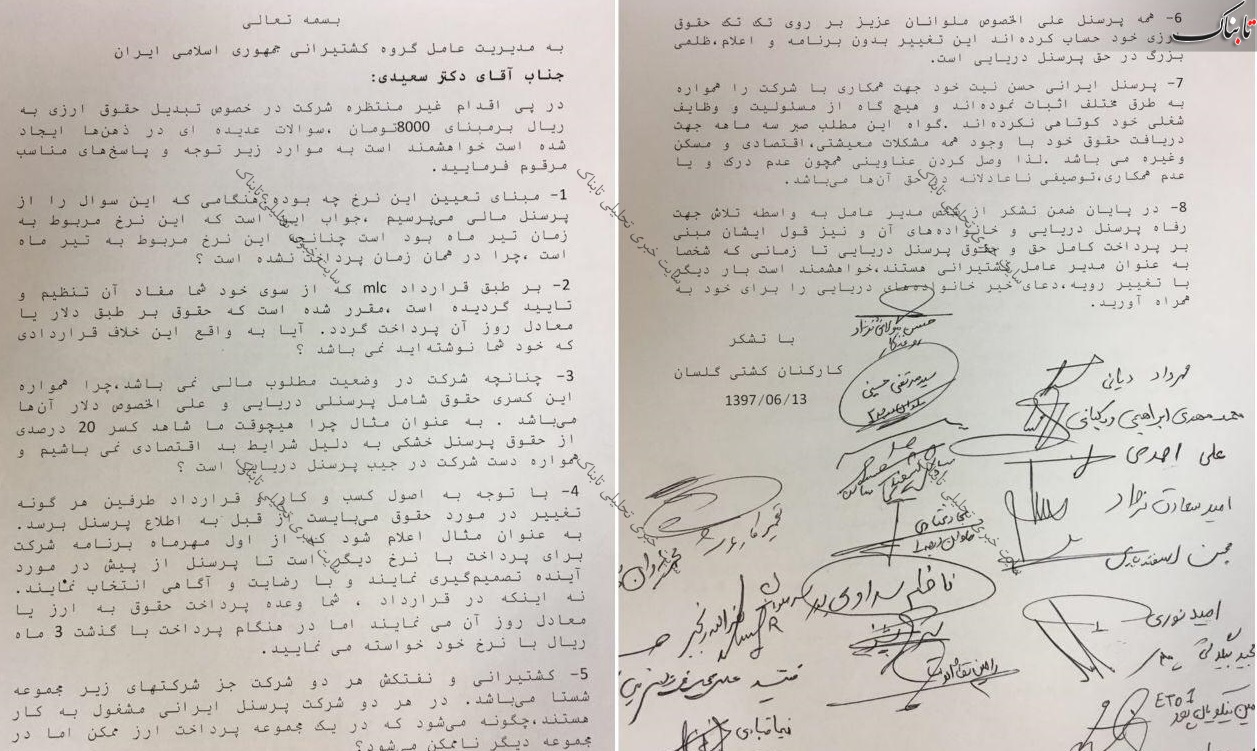 بسمه تعالی
به مدیریت عامل گروه کشتیرانی جمهوری اسلامی ایران
جناب آقای دکتر سعیدی:
در پی اقدام غیر منتظره شرکت در خصوص تبدیل حقوق ارزی به
ریال برمبنای 8000تومان ،سوالات عدیده ای در ذهن‌ها ایجاد
شده است خواهشمند است به موارد زیر توجه و پاسخ‌های مناسب
مرقوم فرمایید.
1- مبنای تعیین این نرخ چه بود؟ هنگامی که این سوال را از
پرسنل مالی می‌پرسیم ،جواب این است که این نرخ مربوط به
زمان تیر ماه بود است چنانچه این نرخ مربوط به تیر ماه
است ،چرا در همان زمان پرداخت نشده است ؟
2- بر طبق قرارداد mlc که از سوی خود شما مفاد آن تنظیم و
تایید گردیده است ،مقرر شده است که حقوق بر طبق دلار یا
معادل روز آن پرداخت گردد. آیا به واقع این خلاف قراردادی
که خود شما نوشته‌اید نمی باشد ؟
3- چنانچه شرکت در وضعیت مطلوب مالی نمی باشد،چرا همواره
این کسری حقوق شامل پرسنلی دریایی و علی الخصوص دلار آن‌ها
می‌باشد . به عنوان مثال چرا هیچوقت ما شاهد کسر 20 درصدی
از حقوق پرسنل خشکی به دلیل شرایط بد اقتصادی نمی باشیم و
همواره دست شرکت در جیب پرسنل دریایی است ؟
4- با توجه به اصول کسب و کار و قرارداد طرفین هر گونه
تغییر در مورد حقوق می‌بایست از قبل به اطلاع پرسنل برسد.
به عنوان مثال اعلام شود که از اول مهرماه برنامه شرکت
برای پرداخت با نرخ دیگر است تا پرسنل از پیش در مورد
آینده تصمیم‌گیری نمایند و با رضایت و آگاهی انتخاب نمایند.
نه اینکه در قرارداد ، شما وعده پرداخت حقوق به ارز یا
معادل روز آن می نمایند اما در هنگام پرداخت با گذشت 3 ماه
ریال با نرخ خود خواسته می نمایید.
5- کشتیرانی و نفتکش هر دو شرکت جز شرکتهای زیر مجموعه
شستا می‌باشد. در هر دو شرکت پرسنل ایرانی مشغول به کار
هستند،چگونه می‌شود که در یک مجموعه پرداخت ارز ممکن اما در
مجموعه دیگر ناممکن می‌شود؟
تابناک
6- همه پرسنل علی الخصوص ملوانان عزیز بر روی تک تک حقوق
ارزی خود حساب کرده‌اند این تغییر بدون برنامه و اعلام،ظلمی
بزرگ در حق پرسنل دریایی است.
7- پرسنل ایرانی حسن نیت خود جهت همکاری با شرکت را همواره
به طرق مختلف اثبات نموده‌اند و هیچ گاه از مسئولیت و وظایف
شغلی خود کوتاهی نکرده‌اند .گواه این مطلب صبر سه ماهه جهت
دریافت حقوق خود با وجود همه مشکلات معیشتی،اقتصادی و مسکن
وغیره می باشد .لذا وصل کردن عناوینی همچون عدم درک و یا
عدم همکاری،توصیفی ناعادلانه در حق آن‌ها می‌باشد.
8- در پایان ضمن تشکر از شخص مدیر عامل به واسطه تلاش جهت
رفاه پرسنل دریایی و خانواده‌های آن و نیز قول ایشان مبنی
بر پرداخت کامل حق و حقوق پرسنل دریایی تا زمانی که شخصا
به عنوان مدیر عامل کشتیرانی هستند،خواهشمند است بار دیگر
با تغییر رویه،دعای خیر خانواده‌های دریایی را برای خود به
همراه آورید.
با تشکر
کارکنان کشتی گلسان
1397/06/13
سید مرتضی حسینی
مهرداد دیانی
محمد مهدی ابراهیمی
علی احمدی
امیر سعادت نژاد
محسن اسفندیاری
امید نوری
ETO1
سایت خبری تحلیلی تابناک